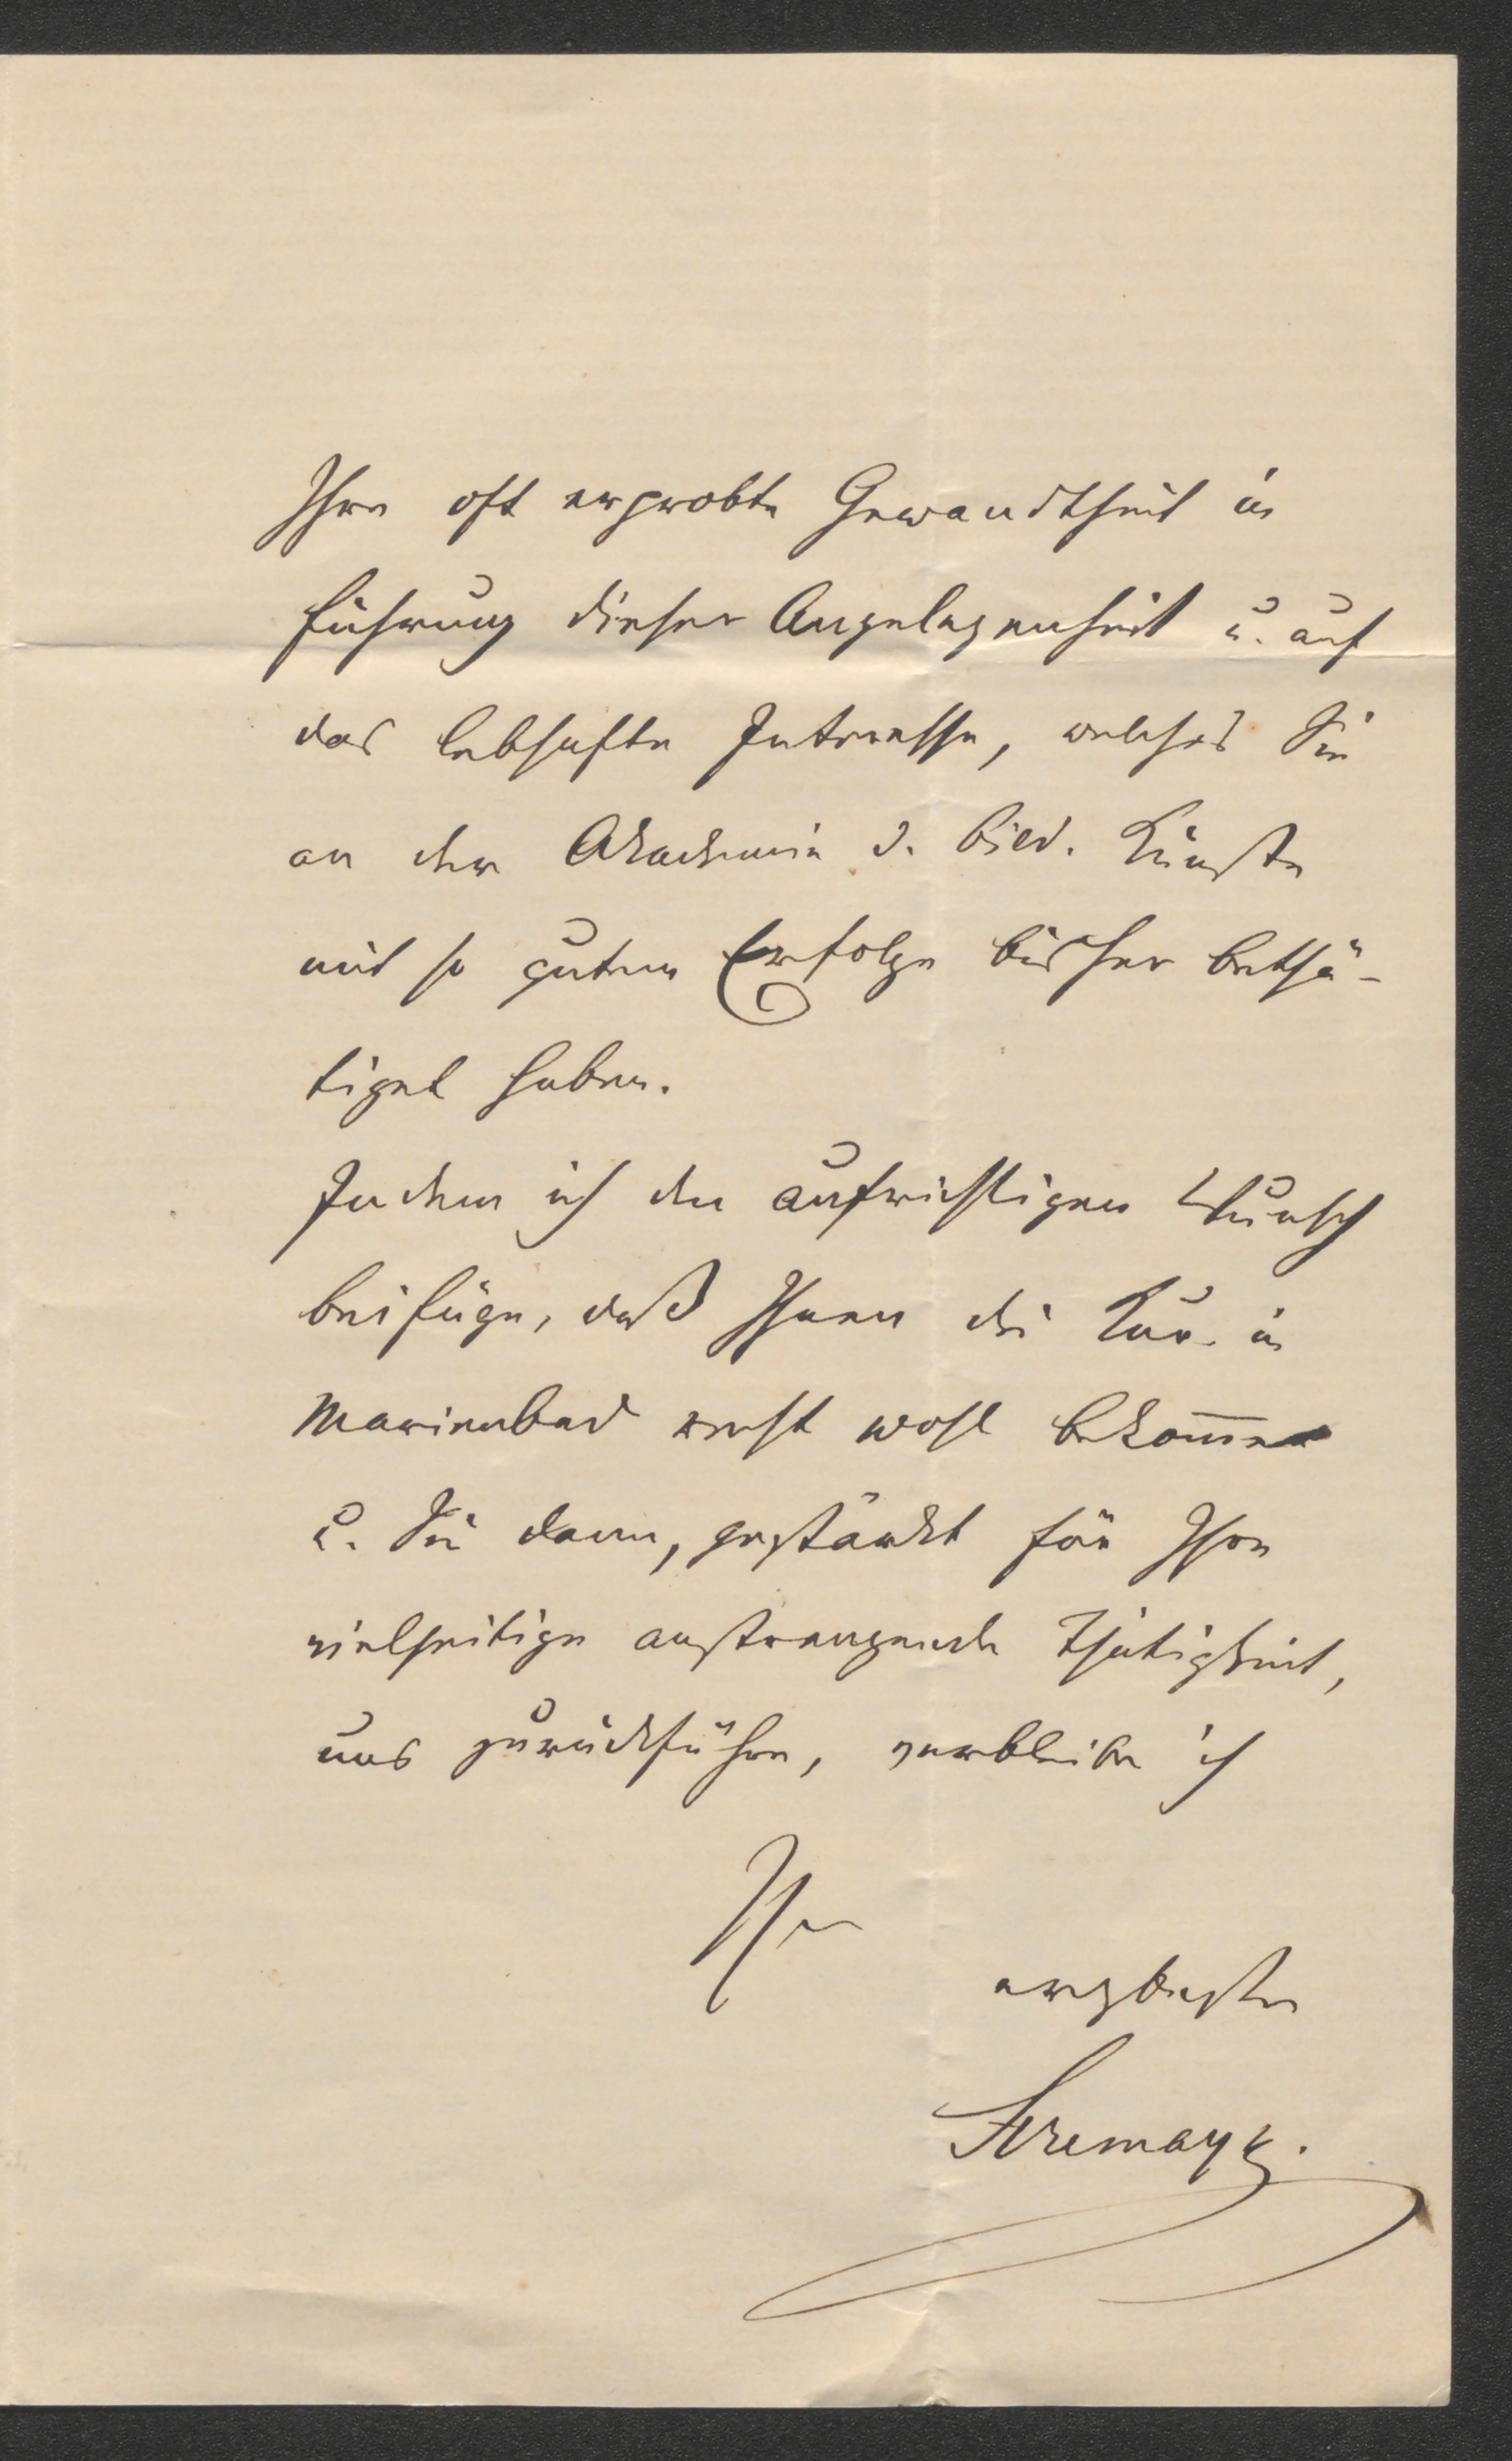 Ihre oft erprobte Gewandtheit in
Führung dieser Angelegenheit u. auf
das lebhafte Interesse, welches Sie
an der Akademie d. bild. Künste
mit so gutem Erfolge bisher bethä-
tiget haben.
Indem ich den aufrichtigen Wunsch
beifüge, daß Ihnen die Kur in
Marienbad recht wohl bekommen
u. Sie dann, gestärkt für Ihre
vielseitige anstrengende Thätigkeit,
uns zurückführe, verbleibe ich
Ihr
ergbenster
Stremayr.